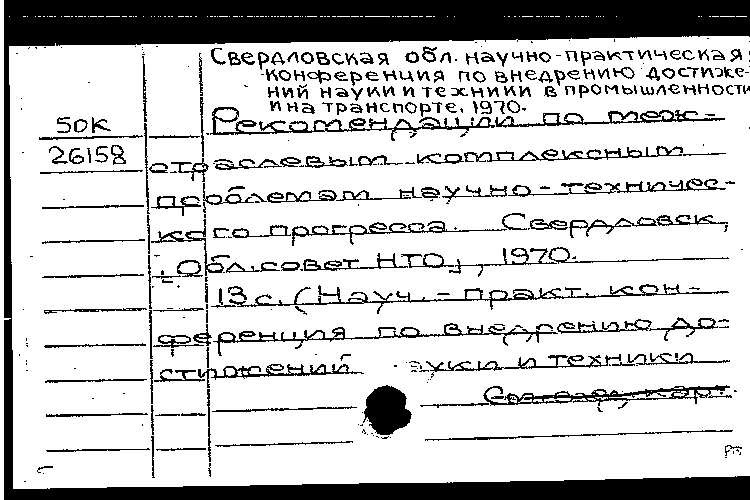 Свердловская обл. научно-практическая
конференция по внедрению достиже-
ний науки и техники в промышленности
и на транспорте, 1970.
50К Рекомендации по меж-
26158 отраслевым комплексным
проблемам научно-техничес-
кого прогресса. Свердловск,
[Обл. совет НТО], 1970.
13 с. (Науч.-практ. кон-
ференция по внедрению до-
стижений ауки и техники